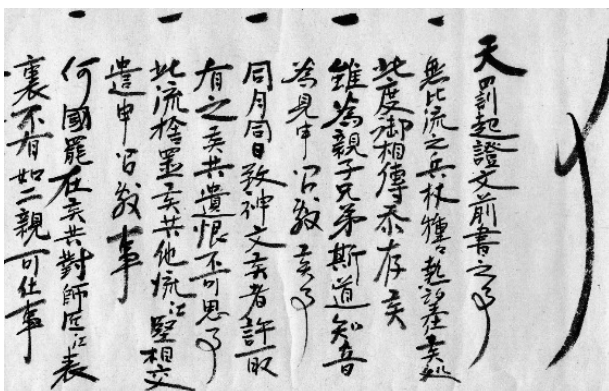 天罸起證文前書之事
一 無比流之兵杖種々熱望在候処
此度御相傳忝存候
一 雖為親子兄弟斯道知音
為見申間敷候事
一 同月同日致神文候者許取
有之候共遺恨不可思事
一 此流捨置候共他流江堅相交
遣申間敷事
一 何國罷在候共對師匠江表
裏不有如二親可仕事